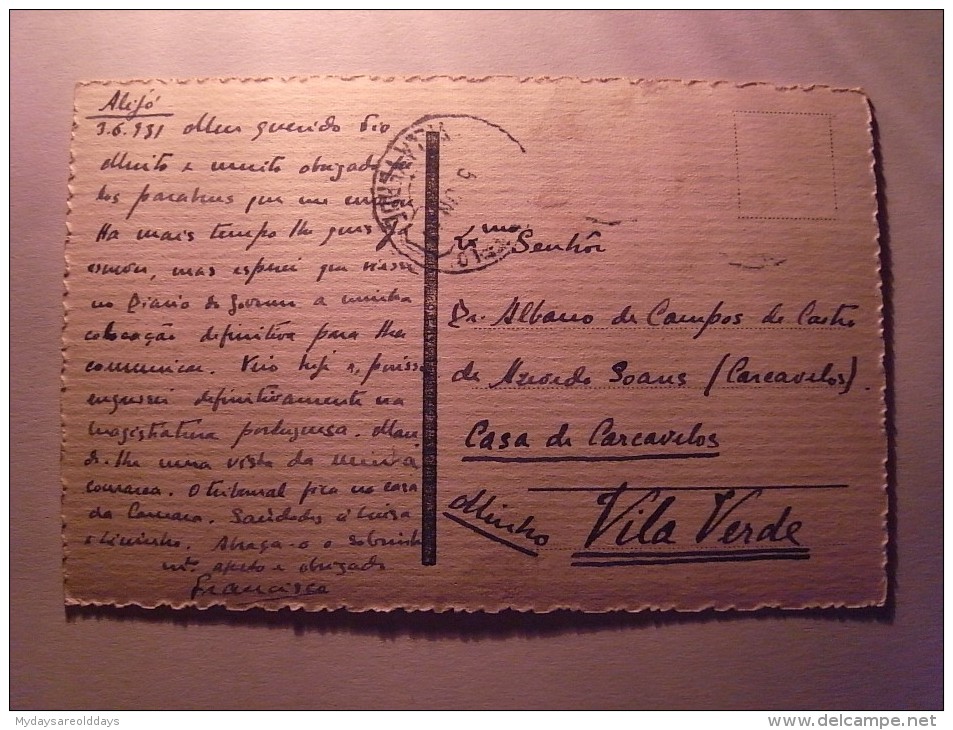 Alijó
3.6.951 Meu querido tio
Muito e muito obrigado pe
los parabens que me enviou
Ha mais tempo lhe quis
mas esperei que viesse
no Diario do Governo a minha
colocação definitiva para lha
comunicar. Veio hoje e,
ingressei definitivamente na
magistratura portuguesa. Man
do-lhe uma vista da minha
comarca. O tribunal fica na casa
da Camara. Saudades á Luisa
e Abraça-o o sobrinho
mto. amigo e obrigado
Francisco
Exmo
Senhôr
Dr. Albano de Campos de Castro
de Azevedo Soares (Carcavelos).
Casa de Carcavelos
Minho
Vila Verde
Mydaysareolddays
www.delcampe.net